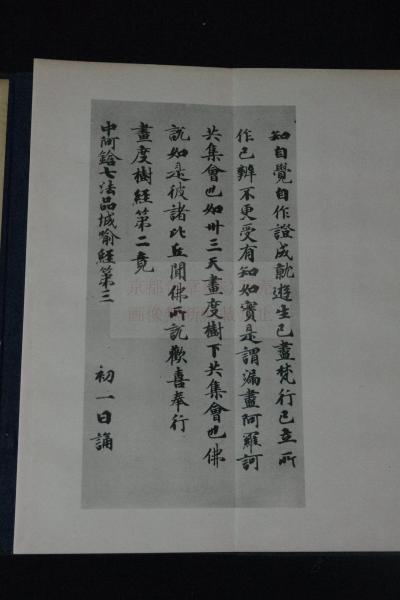 知自覺自作證成就遊生已盡梵行已立所
作已辦不更受有知如實是謂漏盡阿羅訶
共集會也如卅三天晝度樹下共集會也佛
說如是彼諸比丘聞佛所說歡喜奉行
晝度樹經第二竟
中阿鋡七法品城喻經第三 初一日誦